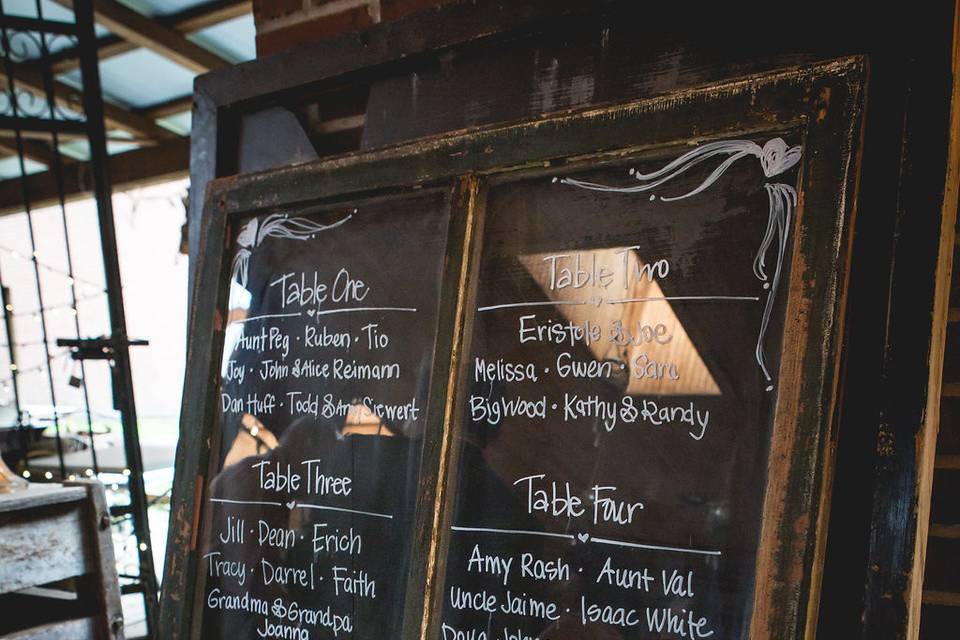 Table One
Aunt Peg · Ruben · Tio
Joy · John & Alice Reimann
Dan Huff · Todd & Amy Siewert
Table Two
& Joe
Melissa · Gwen · Sara
Big Wood · Kathy & Randy
Table Three
Jill · Dean · Erich
Tracy · Darrel · Faith
Grandma & Grandpa
Joanna
Table Four
Amy Rash · Aunt Val
Uncle Jaime · Isaac White
Doug